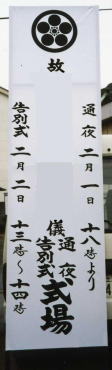 故
通夜 二月一日 十八時より
告別式 二月二日 十三時〜十四時
通夜
儀
告別式
式場